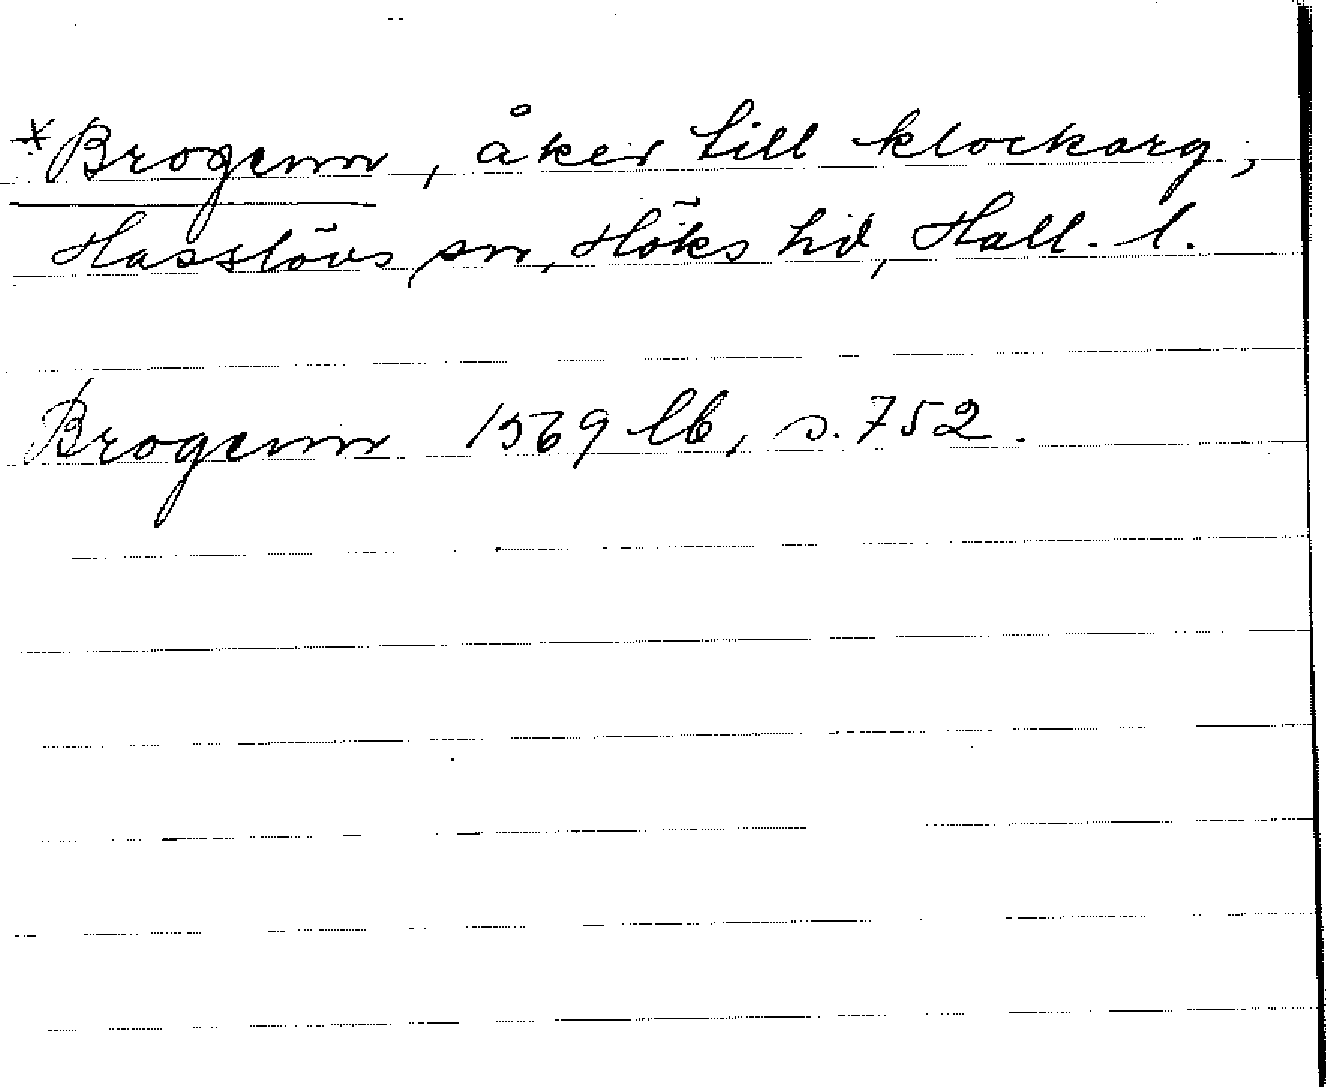 *Brogenn, åker till klockarg,
Hasslövs sn, Höks hd, Hall. l.
Brogenn 1569 lb, s. 752.